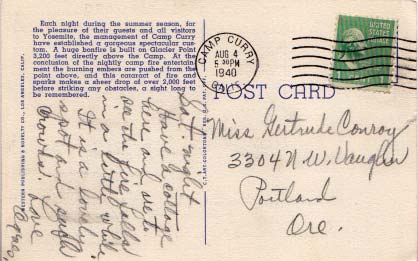 Each night during the summer season, for
the pleasure of their guests and all visitors
to Yosemite, the management of Camp Curry
have established a gorgeous spectacular cus-
tom. A huge bonfire is built on Glacier Point
3,200 feet directly above the Camp. At the
conclusion of the nightly camp fire entertain-
ment the burning embers are pushed from the
point above, and this cataract of fire and
sparks makes a sheer drop of over 2,000 feet
before striking any obstacles, a sight long to
be remembered.
WESTERN PUBLISHING & NOVELTY CO., LOS ANGELES, CALIF.
Sat. night
Have a cottage
here and are to
see the fire falls
in a little while
It is a lovely
spot and such
crowds.
Love
Agnes
C.T. ART-COLORTONE
CAMP CURRY
AUG 4
5 30PM
1940
CALIF.
UNITED STATES
POSTAGE
POST CARD
Miss Gertrude Conroy
3304 N.W. Vaughn
Portland
Ore.